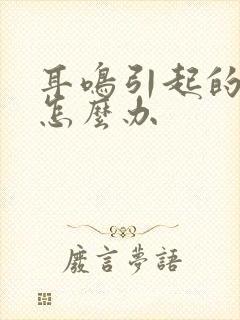 耳鳴引起的
怎麼办
廢言夢語